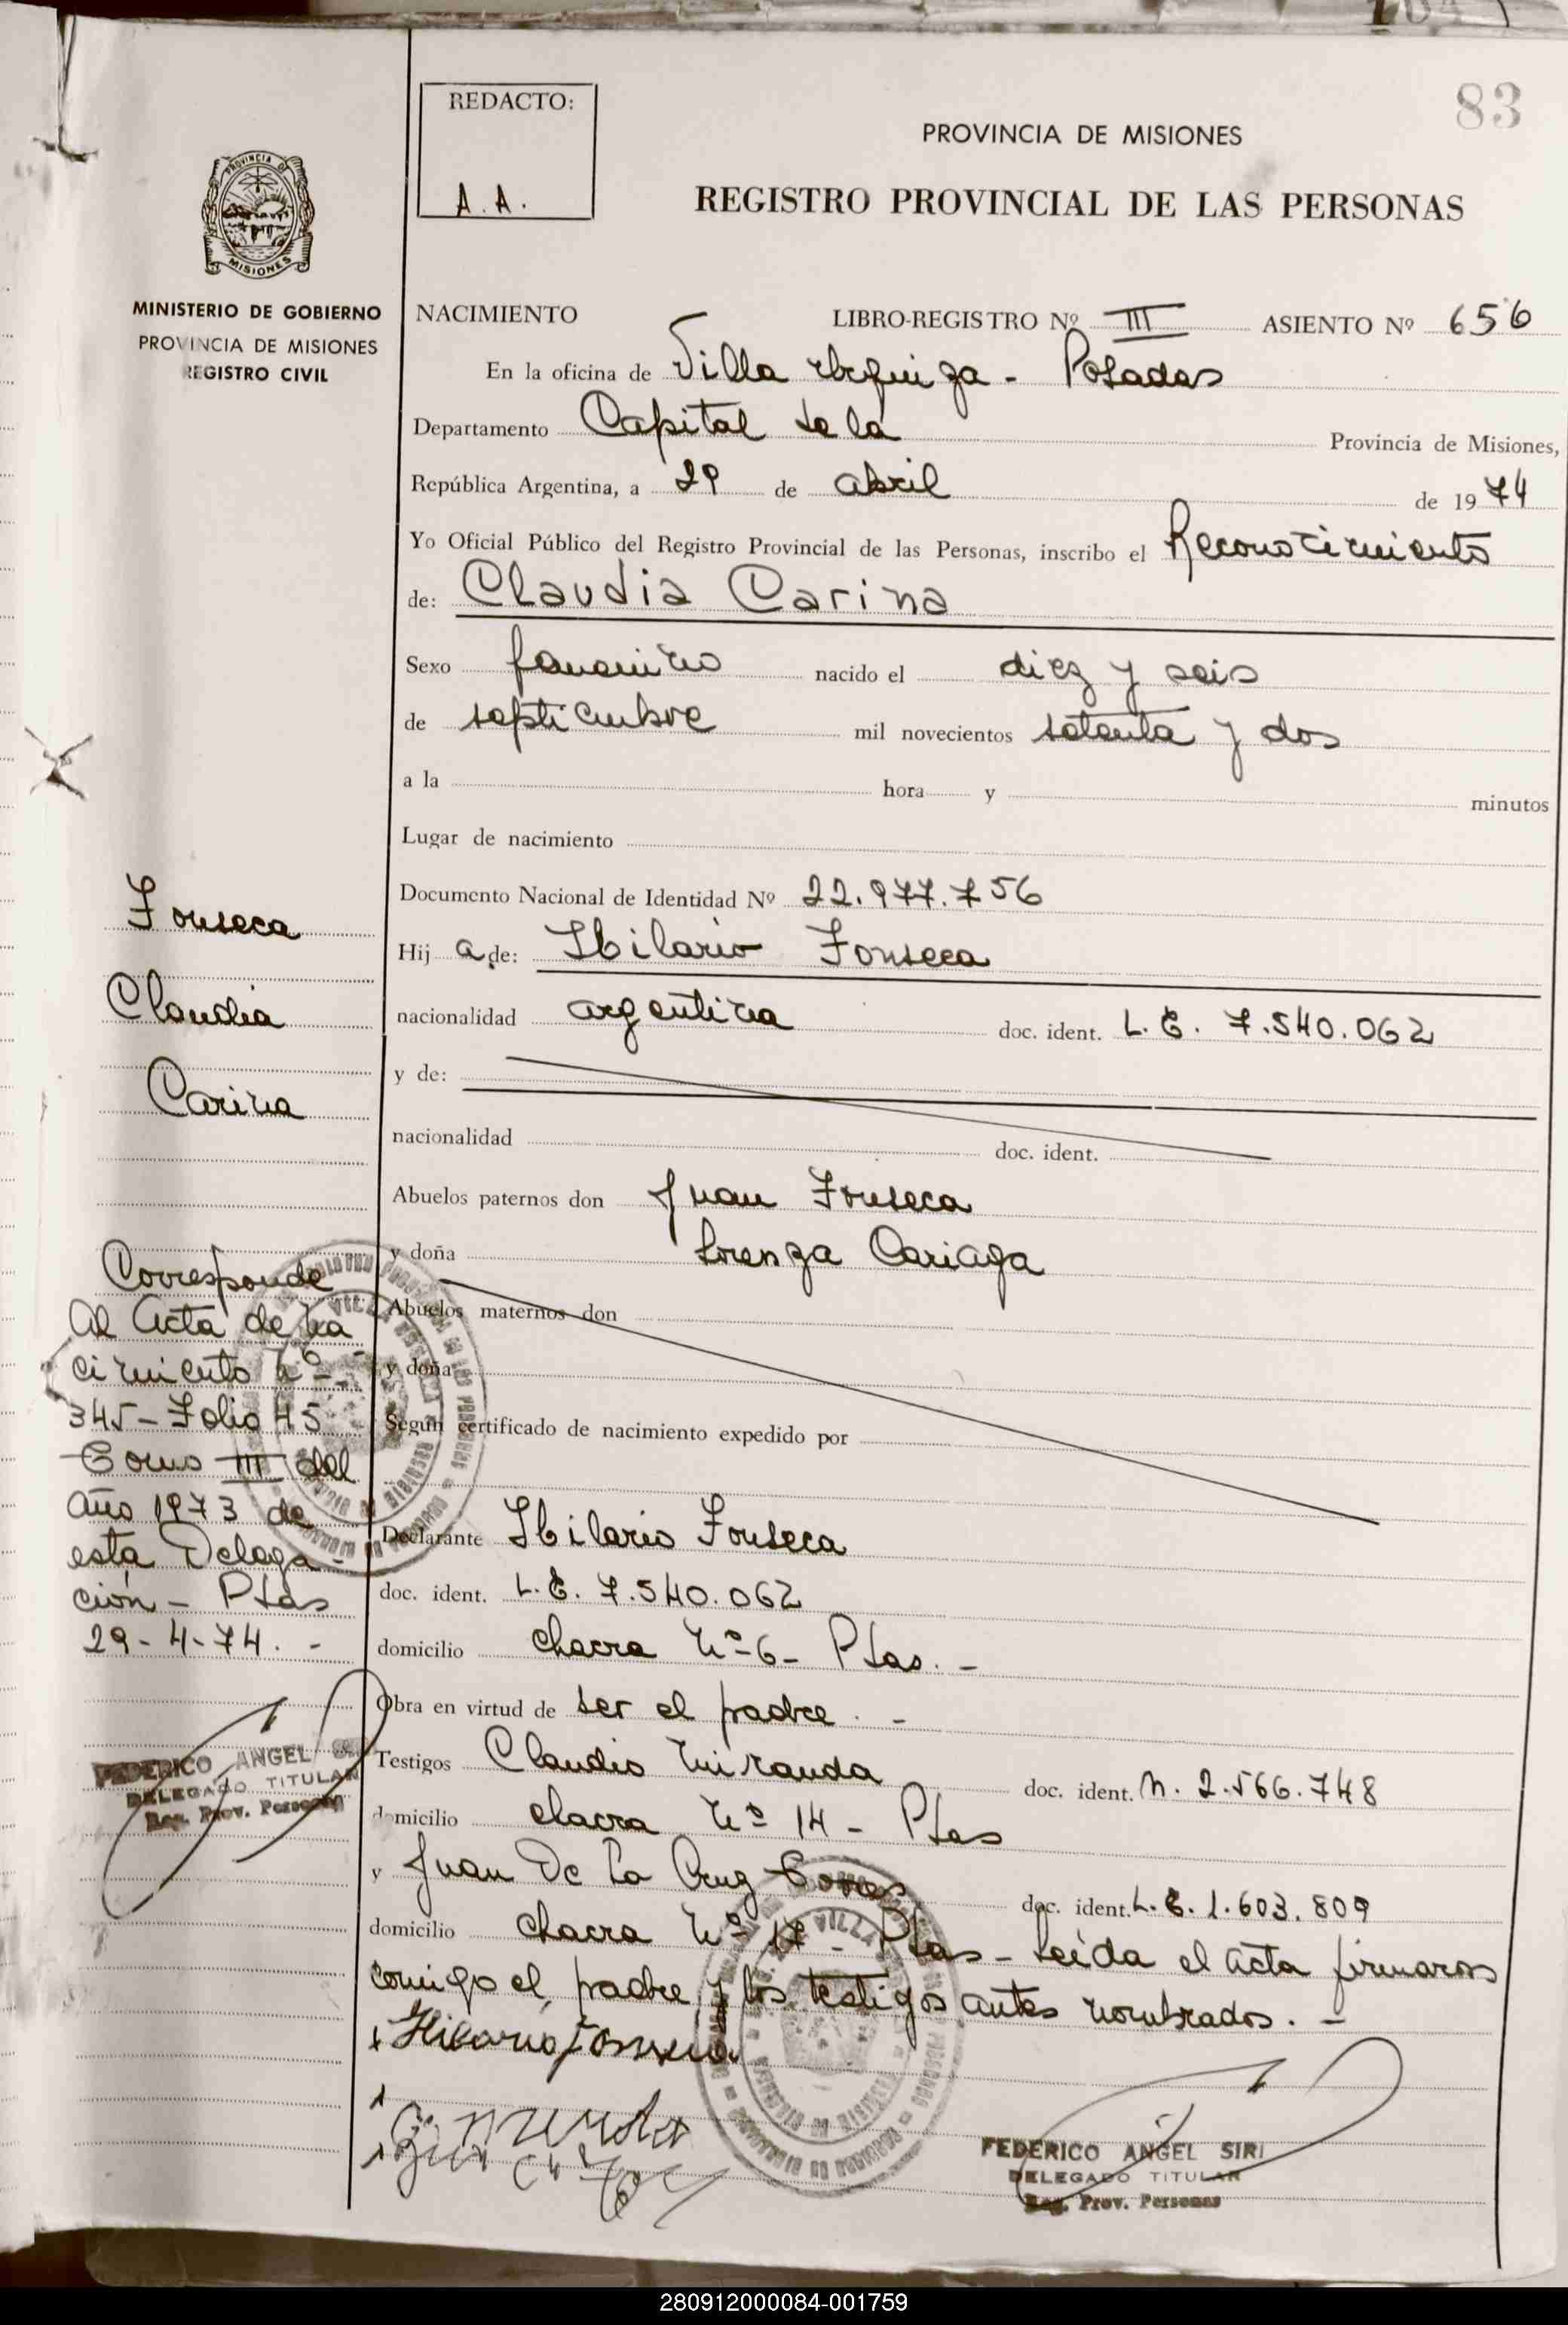 83
REDACTO:
A. A.
PROVINCIA DE MISIONES
REGISTRO PROVINCIAL DE LAS PERSONAS
PROVINCIA DE
MISIONES
MINISTERIO DE GOBIERNO
PROVINCIA DE MISIONES
REGISTRO CIVIL
NACIMIENTO LIBRO-REGISTRO Nº III ASIENTO Nº 656
En la oficina de Villa Urquiza - Posadas
Departamento Capital de la Provincia de Misiones,
República Argentina, a 29 de abril de 1974
Yo Oficial Público del Registro Provincial de las Personas, inscribo el Reconocimiento
de: Claudia Carina
Sexo femenino nacido el diez y seis
de septiembre mil novecientos setenta y dos
a la hora y minutos
Lugar de nacimiento
Documento Nacional de Identidad Nº 22.977.756
Hij a de: Hilario Fonseca
nacionalidad argentina doc. ident. L. E. 7.540.062
y de:
nacionalidad doc. ident.
Abuelos paternos don Juan Fonseca
y doña Lorenza Cariaga
Abuelos maternos don
y doña
Según certificado de nacimiento expedido por
Declarante Hilario Fonseca
doc. ident. L. E. 7.540.062
domicilio chacra Nº 6 - Pdas. -
Obra en virtud de ser el padre. -
Testigos Claudio Miranda doc. ident. M. 2.566.748
domicilio chacra Nº 14 - Pdas
y Juan De La Cruz Torres doc. ident. L. E. 1.603.809
domicilio chacra Nº 17 - Pdas - Leída el acta firmaron
comigo el padre y los testigos antes nombrados. -
Hilario Fonseca
FEDERICO ANGEL SIRI
DELEGADO TITULAR
Reg. Prov. Personas
Fonseca
Claudia
Carina
Corresponde
Al Acta de Na
cimiento Nº
345 - Folio 45
Tomo III del
Año 1973 de
esta Delega-
ción - Pdas
29-4-74. -
FEDERICO ANGEL SIRI
DELEGADO TITULAR
Reg. Prov. Personas
280912000084-001759